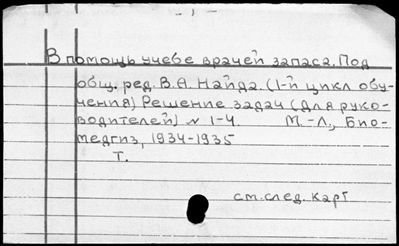 В помощь учебе врачей запаса. Под
общ. ред. В.А. Найда. (1-й цикл обу-
чения) Решение задач (для руко-
водителей) № 1-4. М.-Л., Био-
медгиз, 1934-1935
Т.
см. след. карт